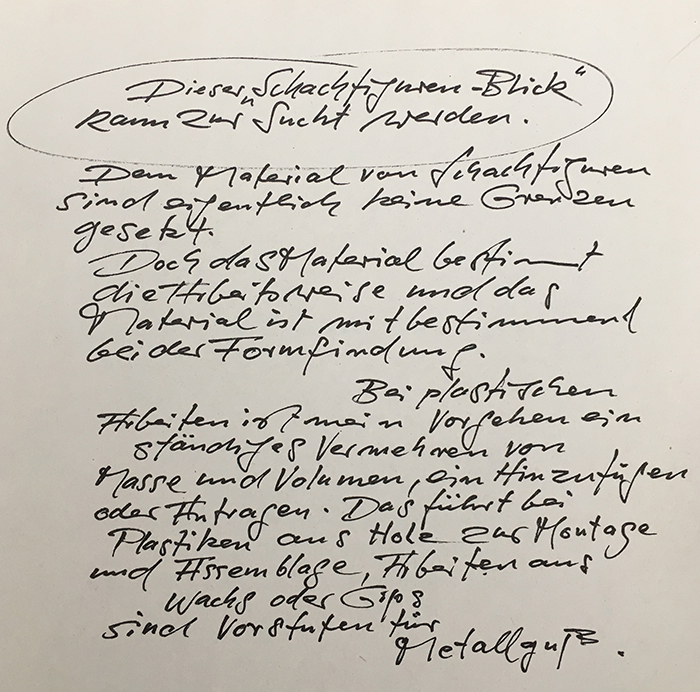 Dieser „Schachfiguren-Blick“
kann zur Sucht werden.
Dem Material von Schachfiguren
sind eigentlich keine Grenzen
gesetzt.
Doch das Material bestimmt
die Arbeitsweise und das
Material ist mitbestimmend
bei der Formfindung.
Bei plastischen
Arbeiten ist mein Vorgehen ein
ständiges Vermehren von
Masse und Volumen, ein Hinzufügen
oder Antragen. Das führt bei
Plastiken aus Holz zur Montage
und Assemblage, Arbeiten aus
Wachs oder Gips
sind Vorstufen für
Metallguß.